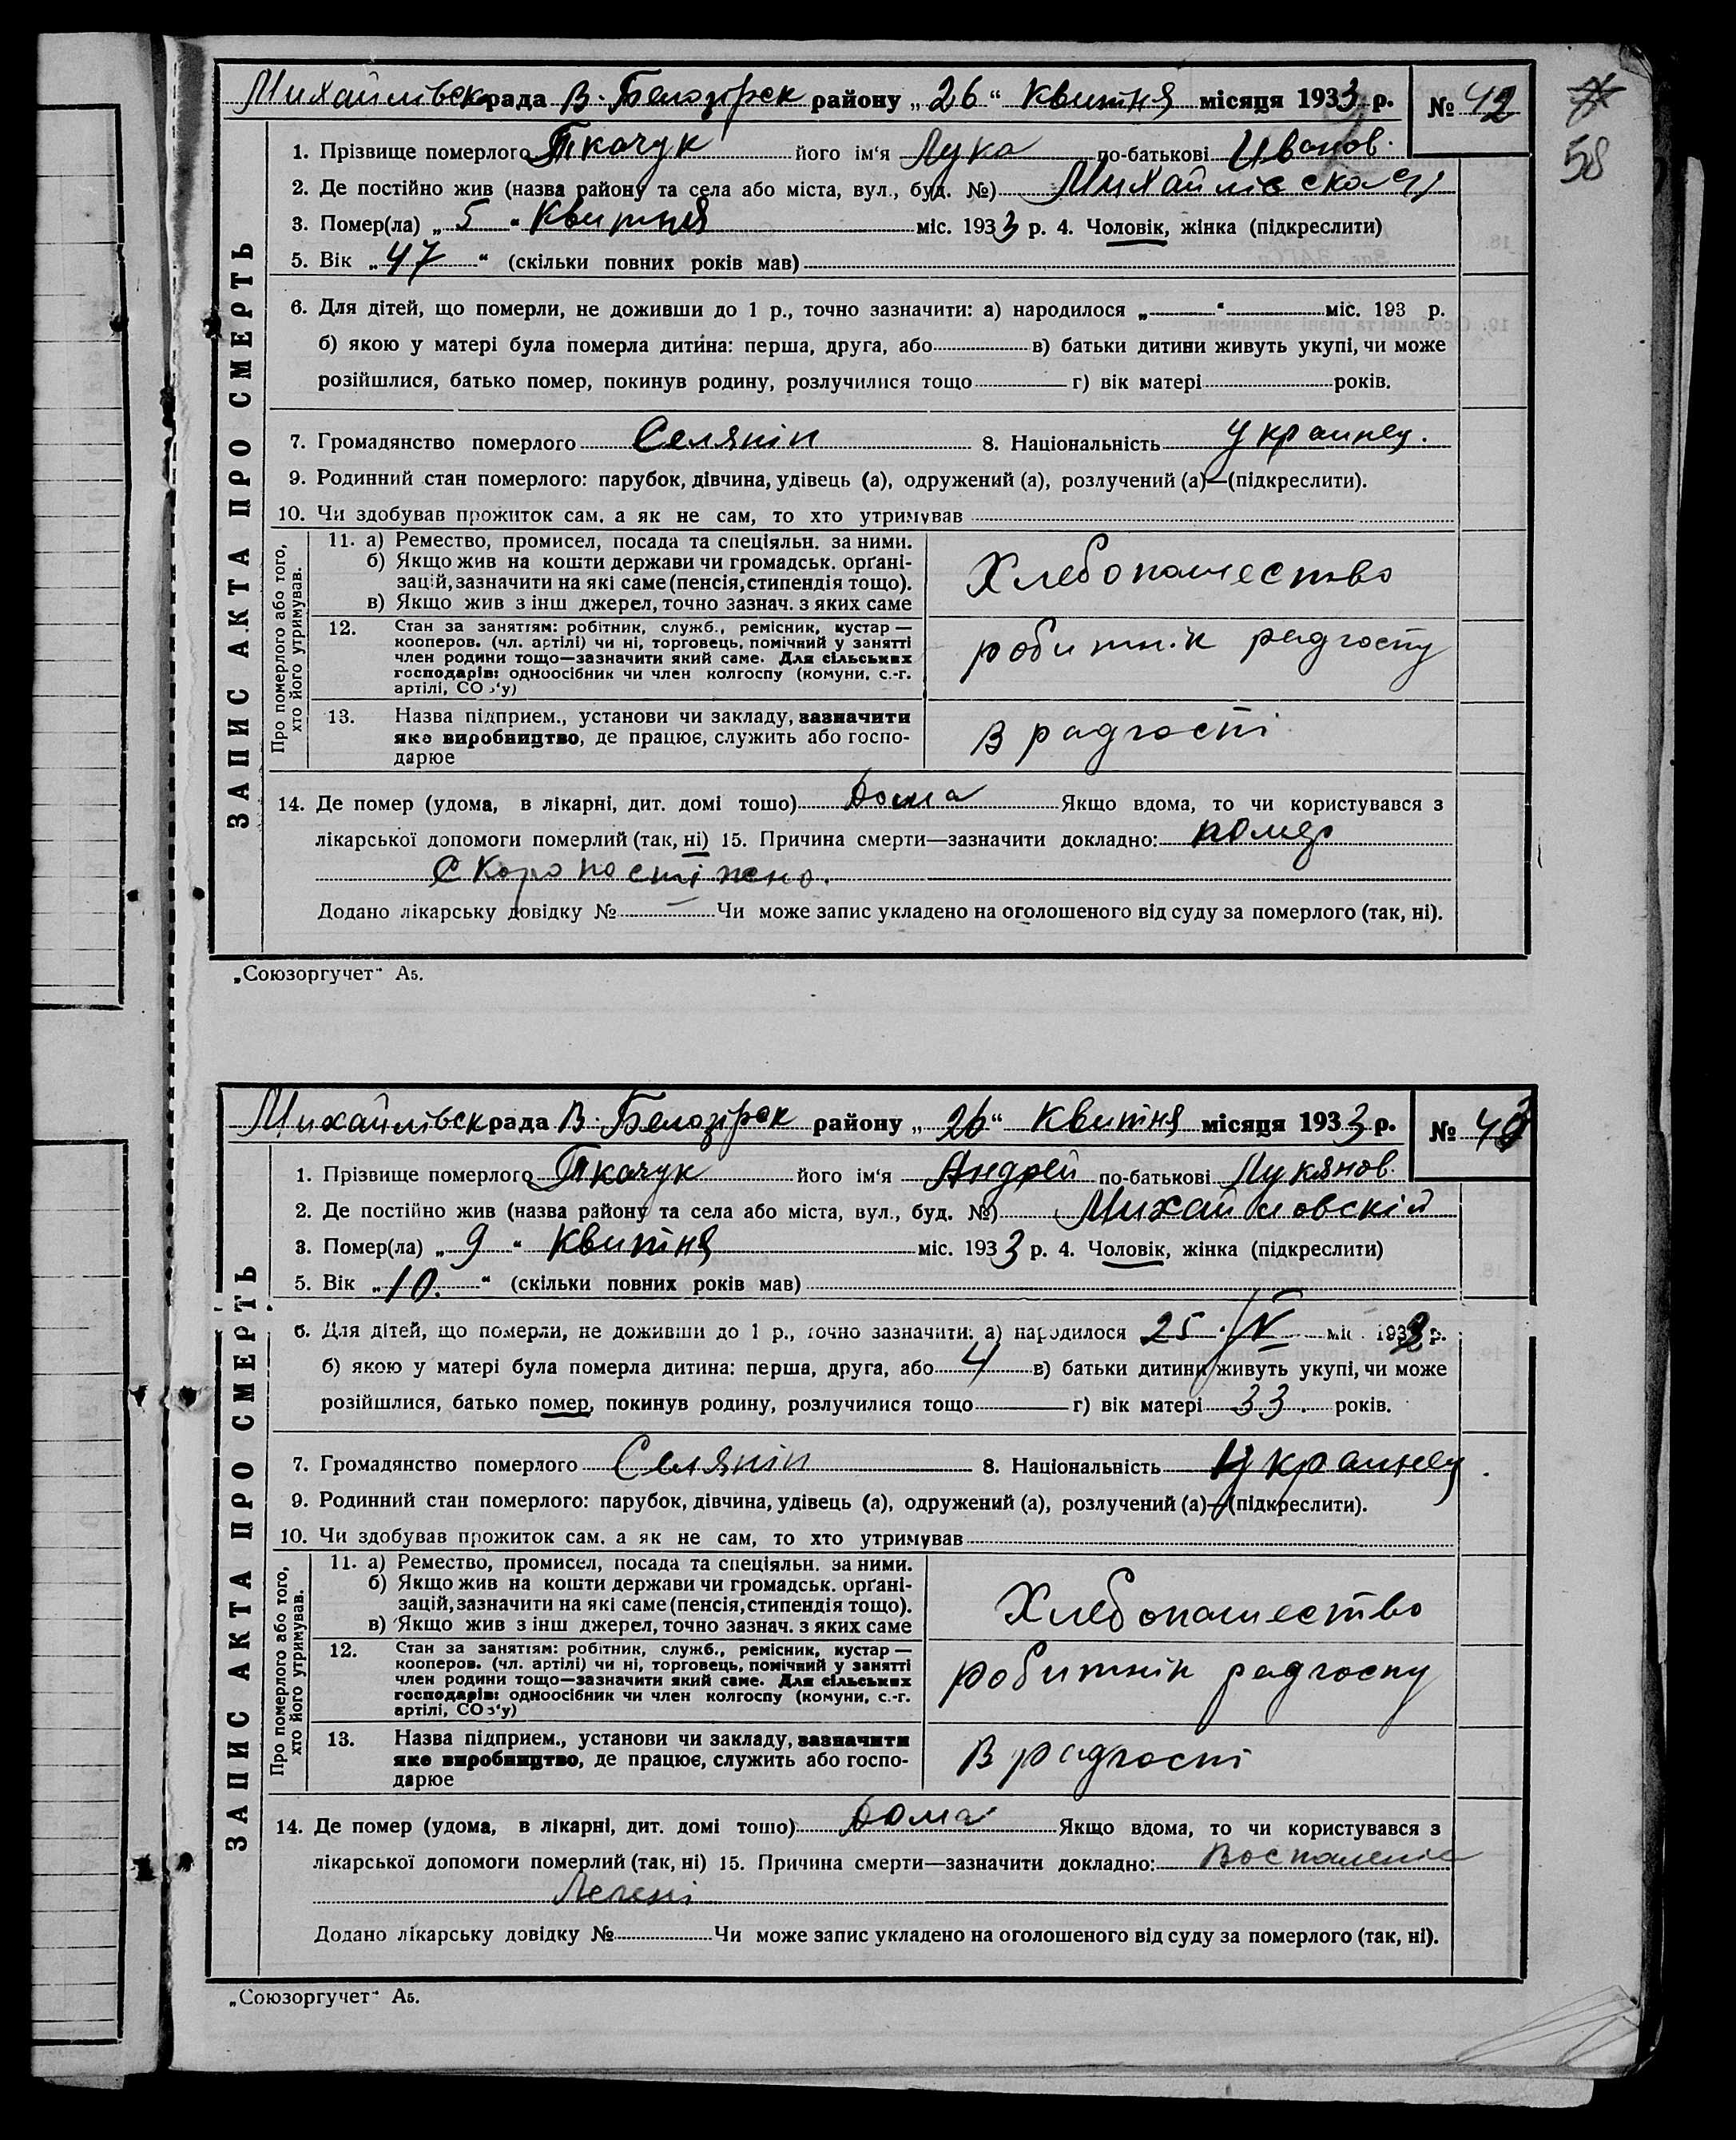 58
Михайлівск рада В. Белозірск району „26“ Квитня місяця 1933 р. № 42
ЗАПИС АКТА ПРО СМЕРТЬ
1. Прізвище померлого Ткачук його ім‘я Лука по-батькові Иванов.
2. Де постійно жив (назва району та села або міста, вул., буд. №)
3. Помер(ла) „5“ Квитня міс. 1933 р. 4. Чоловік, жінка (підкреслити)
5. Вік „47“ (скільки повних років мав)
6. Для дітей, що померли, не доживши до 1 р., точно зазначити: а) народилося „ “ міс. 193 р.
б) якою у матері була померла дитина: перша, друга, або в) батьки дитини живуть укупі, чи може
розійшлися, батько помер, покинув родину, розлучилися тощо г) вік матері років.
7. Громадянство померлого Селянін 8. Національність Украинец.
9. Родинний стан померлого: парубок, дівчина, удівець (а), одружений (а), розлучений (а)—(підкреслити).
10. Чи здобував прожиток сам, а як не сам, то хто утримував
Про померлого або того,
хто його утримував.
11. а) Ремество, промисел, посада та спеціяльн. за ними.
б) Якщо жив на кошти держави чи громадськ. орґані-
зацій, зазначити на які саме (пенсія, стипендія тощо).
в) Якщо жив з інш джерел, точно зазнач. з яких саме
Хлебопашество
12. Стан за заняттям: робітник, служб., ремісник, кустар —
кооперов. (чл. артілі) чи ні, торговець, помічний у занятті
член родини тощо—зазначити який саме. Для сільських
господарів: одноосібник чи член колгоспу (комуни, с.-г.
артілі, СОз‘у)
робитник радгоспу
13. Назва підприєм., установи чи закладу, зазначити
яке виробництво, де працює, служить або госпо-
дарює
В радгоспі
14. Де помер (удома, в лікарні, дит. домі тощо) Дома Якщо вдома, то чи користувався з
лікарської допомоги померлий (так, ні) 15. Причина смерти—зазначити докладно: помер
скоропостіжно.
Додано лікарську довідку № — Чи може запис укладено на оголошеного від суду за померлого (так, ні).
„Союзоргучет“ А5.
Михайлівск рада В. Белозірск району „26“ Квитня місяця 1933 р. № 43
ЗАПИС АКТА ПРО СМЕРТЬ
1. Прізвище померлого Ткачук його ім‘я Андрей по-батькові Лукянов.
2. Де постійно жив (назва району та села або міста, вул., буд. №) Михайловскій
3. Помер(ла) „9“ Квитня міс. 1933 р. 4. Чоловік, жінка (підкреслити)
5. Вік „10.“ (скільки повних років мав)
6. Для дітей, що померли, не доживши до 1 р., точно зазначити: а) народилося 25 міс. 193 р.
б) якою у матері була померла дитина: перша, друга, або 4 в) батьки дитини живуть укупі, чи може
розійшлися, батько помер, покинув родину, розлучилися тощо г) вік матері 33. років.
7. Громадянство померлого Селянін 8. Національність Украинец.
9. Родинний стан померлого: парубок, дівчина, удівець (а), одружений (а), розлучений (а)—(підкреслити).
10. Чи здобував прожиток сам, а як не сам, то хто утримував
Про померлого або того,
хто його утримував.
11. а) Ремество, промисел, посада та спеціяльн. за ними.
б) Якщо жив на кошти держави чи громадськ. орґані-
зацій, зазначити на які саме (пенсія, стипендія тощо).
в) Якщо жив з інш джерел, точно зазнач. з яких саме
Хлебопашество
12. Стан за заняттям: робітник, служб., ремісник, кустар —
кооперов. (чл. артілі) чи ні, торговець, помічний у занятті
член родини тощо—зазначити який саме. Для сільських
господарів: одноосібник чи член колгоспу (комуни, с.-г.
артілі, СОз‘у)
робитнік радгоспу
13. Назва підприєм., установи чи закладу, зазначити
яке виробництво, де працює, служить або госпо-
дарює
В радгоспі
14. Де помер (удома, в лікарні, дит. домі тощо) Дома Якщо вдома, то чи користувався з
лікарської допомоги померлий (так, ні) 15. Причина смерти—зазначити докладно: Воспаленіе
Легені
Додано лікарську довідку № Чи може запис укладено на оголошеного від суду за померлого (так, ні).
„Союзоргучет“ А5.